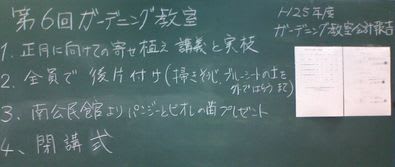 第6回ガーデニング教室
H25年度
ガーデニング教室会計報告
1. 正月に向けての寄せ植え 講義と実技
2. 全員で後片付け(掃きそうじ、ブルーシートの土を
外ではらうまで)
3. 南公民館よりパンジーとビオレの苗プレゼント
4、閉講式